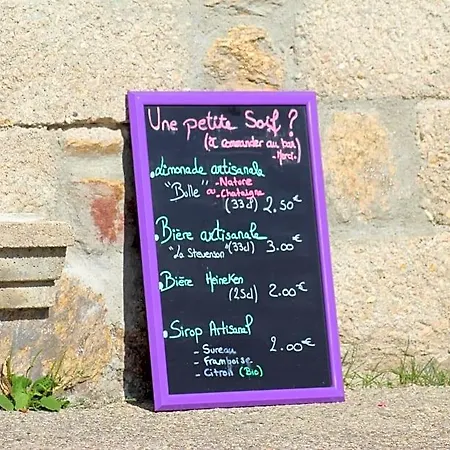 Une petite Soif ?
(à commander au bar)
- Merci.
• Limonade artisanale
"Bulle" - Nature
ou - Chataigne
(33cl) 2.50€
• Bière artisanale
"La Stevenson" (33cl) 3.00€
• Bière Heineken
(25cl) 2.00€
• Sirop Artisanal
- Sureau
- Framboise 2.00€
- Citron (Bio)